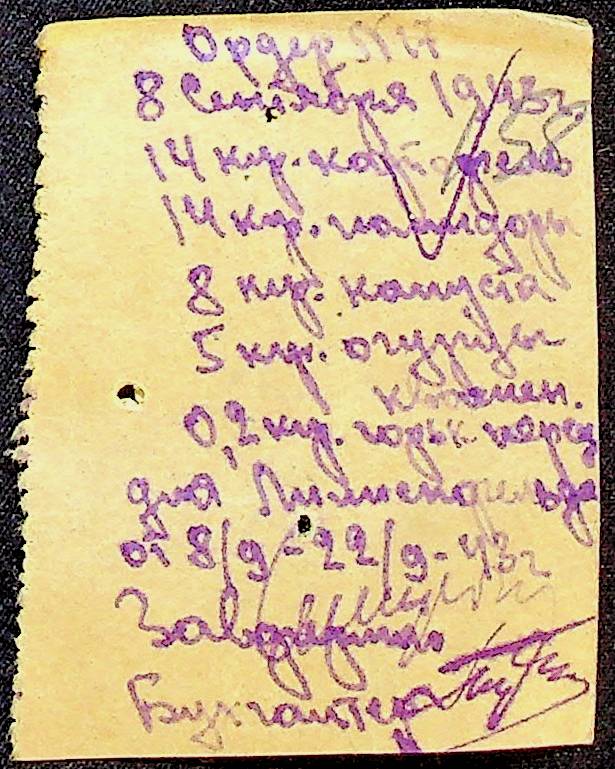 Ордер N17
8 Сентября 1943г.
14 кгр. картофель
14 кгр. помидоры
8 кгр. капуста
5 кгр. огурцы
0,2 кгр. горьк. перец
для
от 8/9-22/9-43г
Зав
Бухгалтер